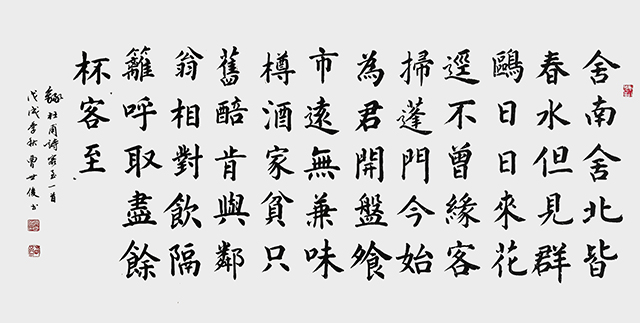 舍南舍北皆
春水但見群
鷗日日來花
逕不曾緣客
掃蓬門今始
為君開盤飧
市遠無兼味
樽酒家貧只
舊醅肯與鄰
翁相對飲隔
籬呼取盡餘
杯客至
錄杜甫詩客至一首
戊戌季秋曹世俊书